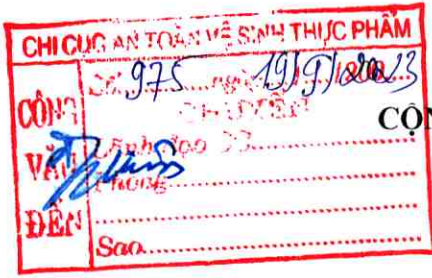 CHI CỤC AN TOÀN VỆ SINH THỰC PHẨM
CÔNG VĂN ĐẾN
Số: 975 ngày 19/9/2023
CHUYỂN
Lãnh đạo CC
Phòng
Sao
CỘN